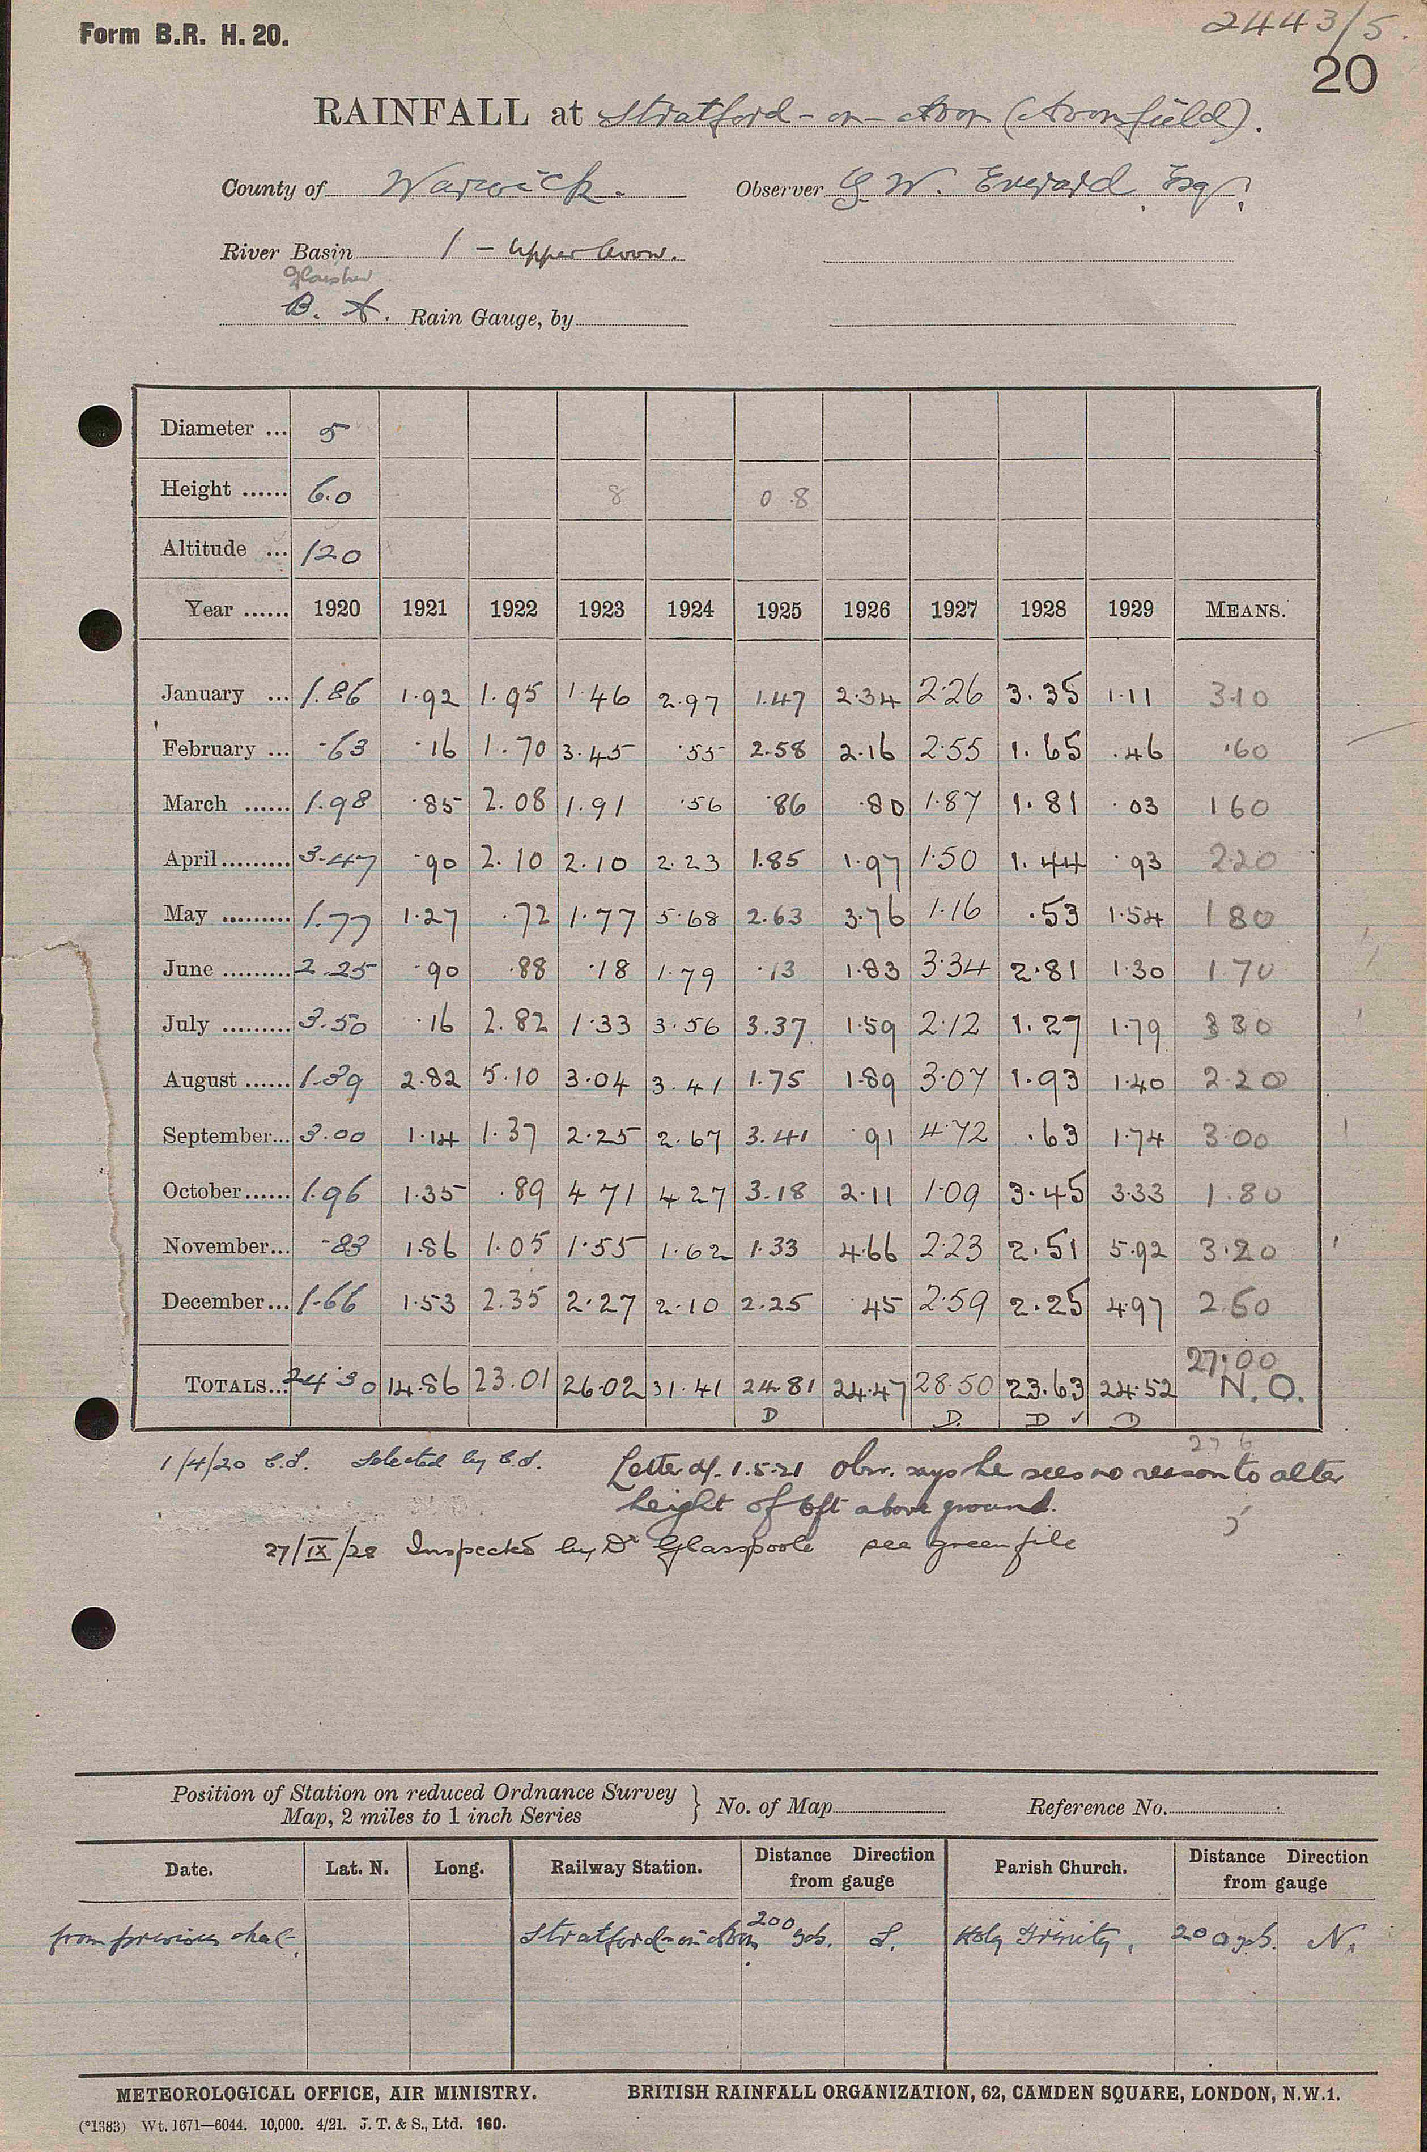 Form B.R. H. 20.
2443/5.
20
RAINFALL at Stratford-on-Avon (Avonfield).
County of Warwick. Observer G. W. Everard, Esq.
River Basin 1 - Upper Avon.
Glaisher
B. A. Rain Gauge, by
Diameter ... 5
Height ...... 6.0 8 0.8
Altitude ... 120
Year ...... 1920 1921 1922 1923 1924 1925 1926 1927 1928 1929 MEANS.
January ... 1.86 1.92 1.95 1.46 2.97 1.47 2.34 2.26 3.35 1.11 3.10
February ... .63 .16 1.70 3.45 .55 2.58 2.16 2.55 1.65 .46 .60
March ...... 1.98 .85 2.08 1.91 .56 .86 .80 1.87 1.81 .03 1 60
April......... 3.47 .90 2.10 2.10 2.23 1.85 1.97 1.50 1.44 .93 2.20
May ......... 1.77 1.27 .72 1.77 5.68 2.63 3.76 1.16 .53 1.54 1 80
June ......... 2.25 .90 .88 .18 1.79 .13 1.83 3.34 2.81 1.30 1 70
July ......... 3.50 .16 2.82 1.33 3.56 3.37 1.59 2.12 1.27 1.79 3 30
August ...... 1.39 2.82 5.10 3.04 3.41 1.75 1.89 3.07 1.93 1.40 2.20
September... 3.00 1.14 1.37 2.25 2.67 3.41 .91 4.72 .63 1.74 3.00
October...... 1.96 1.35 .89 4 71 4 27 3.18 2.11 1.09 3.45 3.33 1.80
November... .83 1.86 1.05 1.55 1.62 1.33 4.66 2.23 2.51 5.92 3.20
December... 1.66 1.53 2.35 2.27 2.10 2.25 .45 2.59 2.25 4.97 2.60
27.00
TOTALS... 24.30 14.86 23.01 26.02 31.41 24.81 24.47 28.50 23.63 24.52 N.O.
D D. D ✓ D
27 6
1/4/20 C.S. Selected by C.S. Letter of. 1.5.21 Obsr. says he sees no reason to alter
height of 6ft above ground.
27/IX/28 Inspected by Dr Glasspoole see green file
Position of Station on reduced Ordnance Survey
Map, 2 miles to 1 inch Series } No. of Map Reference No.
Date. Lat. N. Long. Railway Station. Distance from gauge Direction Parish Church. Distance from gauge Direction
from previous sheet. Stratford-on-Avon 200 yds. S. Holy Trinity, 200 yds. N.
METEOROLOGICAL OFFICE, AIR MINISTRY. BRITISH RAINFALL ORGANIZATION, 62, CAMDEN SQUARE, LONDON, N.W.1.
(*1383) Wt. 1671—6044. 10,000. 4/21. J. T. & S., Ltd. 160.